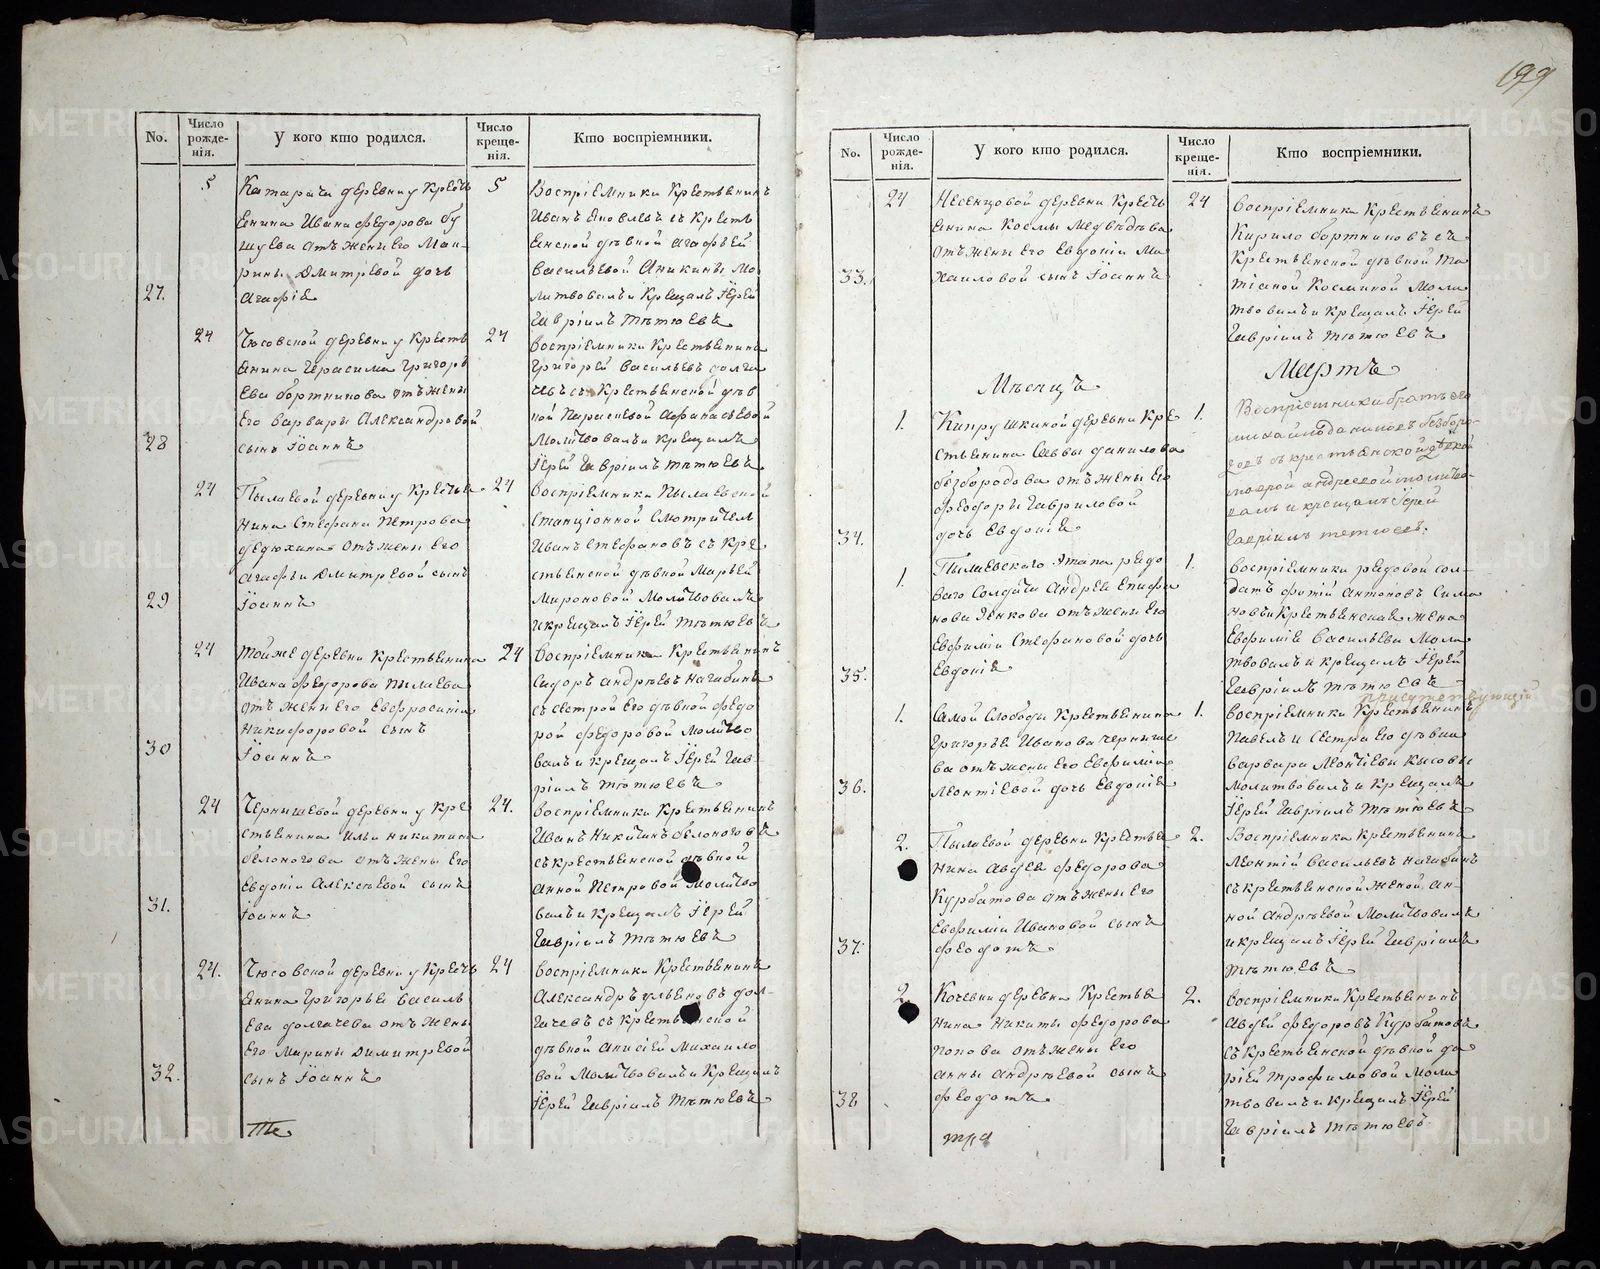 199
No.
Число рожденія.
У кого кто родился.
Число крещенія.
Кто воспріемники.
5
Катарачи деревни у кресть
янина Ивана Федорова бу
шуева отъ жены его Ма
рины Дмитріевой дочь
27.
Агафія
5
Воспріемники крестьянинъ
Иванъ съ кресть
янской дѣвкой Агафьей
Васильевой Аникины мо
литвовалъ и крещалъ Іерей
Гавріилъ Тетюевъ
24
Чюсовской деревни у кресть
янина Герасима Григорь
ева бортникова отъ жены
его Варвары Александровой
28
сынъ Іоаннъ
24
воспріемники крестьянинъ
Григорей Васильевъ долга
чевъ съ крестьянской дѣв
кой Парасковой Афанасьевой
молитвовалъ и крещалъ
Іерей Гавріилъ Тетюевъ
24
Пылаевой деревни у крестья
нина Стефана Петрова
федюхина отъ жены его
Агафьи Дмитревой сынъ
29
Іоаннъ
24
воспріемники Пылаевской
станціонной смотритель
Иванъ Стефановъ съ кре
стьянской дѣвкой Марьей
Мироновой молитвовалъ
и крещалъ Іерей Тетюевъ
24
Той же деревни крестьянина
Ивана Федорова Пылаева
отъ жены его Евфросиніи
Никифоровой сынъ
30
Іоаннъ
24
воспріемники крестьянинъ
Сидоръ Андреевъ Нагибинъ
съ сестрой его дѣвкой Федо
рой Федоровой молитво
валъ и крещалъ Іерей Гав
ріилъ Тетюевъ
24
Чернышевой деревни у кре
стьянина Ильи Никитина
бѣлоногова отъ жены его
Евдокіи Алексѣевой сынъ
31.
Іоаннъ
24.
воспріемники крестьянинъ
Иванъ Никитинъ бѣлоноговъ
съ крестьянской дѣвкой
Анной Петровой молитво
валъ и крещалъ Іерей
Гавріилъ Тетюевъ
24.
Чюсовской деревни у кресть
янина Григорья Василь
ева долгачева отъ жены
его Марины Димитревой
32.
сынъ Іоаннъ
24
воспріемники крестьянинъ
Александръ Ульяновъ дол-
гачевъ съ крестьянской
дѣвкой Анисіей Михаило
вой молитвовалъ и крещалъ
Іерей Гавріилъ Тетюевъ
No.
Число рожденія.
У кого кто родился.
Число крещенія.
Кто воспріемники.
24
деревни кресть
янина Космы Медвѣдева
отъ жены его Евдокіи Ми
33.
хаиловой сынъ Іоаннъ
24
воспріемники крестьянинъ
Кирило бортниковъ съ
крестьянской дѣвкой Та
тіаной Косминой моли
твовалъ и крещалъ Іерей
Гавріилъ Тетюевъ
Мѣсяцъ
Мартъ
1.
Кипрушкиной деревни кре
стьянина Саввы данилова
безбородова отъ жены его
Феодоры Гавриловой
34.
дочь Евдокія
1.
Воспріемники братъ его
михайло даниловъ безборо-
довъ съ крестьянской дѣвкой
андреевой молитво-
валъ и крещалъ Іерей
Гавріилъ тетюевъ.
1.
Пылаевскаго Этапа рядо
ваго Солдата Андрея Епифа
нова Зенкова отъ жены его
Евфиміи Стефановой дочь
35.
Евдокія
1.
воспріемники рядовой сол-
датъ Фотій Антоновъ Сима
новъ и крестьянская жена
Евфимія Васильева моли
твовалъ и крещалъ Іерей
Гавріилъ Тетюевъ
1.
Самой Слободы крестьянина
Григорья Иванова черныше
ва отъ жены его Евфиміи
36.
Леонтіевой дочь Евдокія
1.
воспріемники крестьянинъ
Павелъ и сестра его дѣвка
варвара Леонтіевы
молитвовалъ и крещалъ
Іерей Гавріилъ Тетюевъ
2.
Пылаевой деревни крестья
нина Авдея Федорова
Курбатова отъ жены его
Евфиміи Ивановой сынъ
37.
Феодотъ
2.
Воспріемники крестьянинъ
Леонтій Васильевъ Нагибинъ
съ крестьянской женой ан-
ной Андрѣевой молитвовалъ
и крещалъ Іерей Гавріилъ
Тетюевъ
2.
Кочевни деревни крестья
нина Никиты Федорова
попова отъ жены его
анны Андрѣевой сынъ
38
Феодотъ
2.
воспріемники крестьянинъ
Авдей Федоровъ Курбатовъ
съ крестьянской дѣвкой да
ріей Трофимовой моли
твовалъ и крещалъ Іерей
Гавріилъ Тетюевъ
METRIKI.GASO-URAL.RU